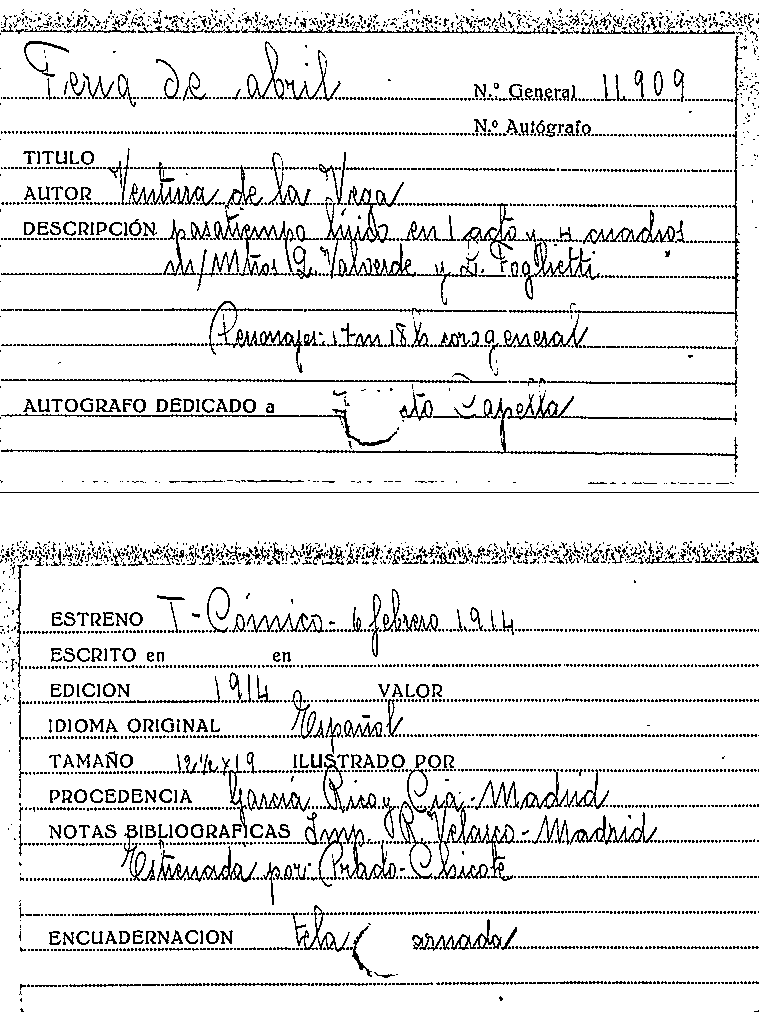 Feria de abril
N.º General 11.909
N.º Autógrafo
TITULO
AUTOR Ventura de la Vega
DESCRIPCIÓN pasatiempo lírico en 1 acto y 4 cuadros
m/Mtros Q. Valverde y L. Foglietti
Personajes: 17 m 18 h coro general
AUTOGRAFO DEDICADO a Capella
ESTRENO T-Cómico- 6 febrero 1914
ESCRITO en en
EDICION 1914 VALOR
IDIOMA ORIGINAL Español
TAMAÑO 12½ x 19 ILUSTRADO POR
PROCEDENCIA García Rico y Cia.-Madrid
NOTAS BIBLIOGRAFICAS Imp. R. Velasco-Madrid
Estrenada por: Prado-Chicote
ENCUADERNACION tela arnada